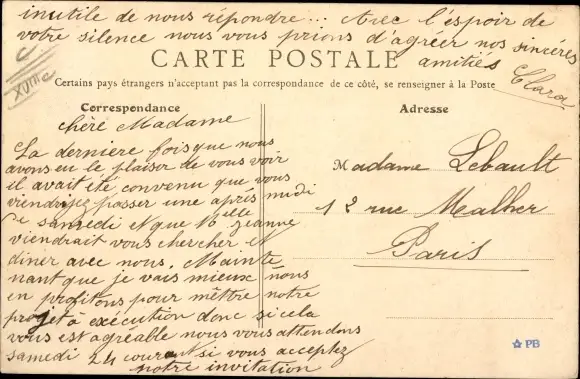 inutile de nous répondre... Avec l'espoir de
votre silence nous vous prions d'agréer nos sincéres
amitiés
Clara
XVIIIe
CARTE POSTALE
Certains pays étrangers n'acceptent pas la correspondance de ce côté, se renseigner à la Poste
Correspondance
chère Madame
La derniere fois que nous
avons eu le plaisir de vous voir
il avait été convenu que vous
viendriez passer une après midi
le samedi et que Melle Jeanne
viendrait vous chercher et
diner avec nous. Mainte
nant que je vais mieux nous
en profitons pour mêttre notre
projet à exécution donc si cela
vous est agréable nous vous attendons
samedi 24 courant si vous acceptez
notre invitation
Adresse
Madame Lebault
12 rue Malher
Paris
PB